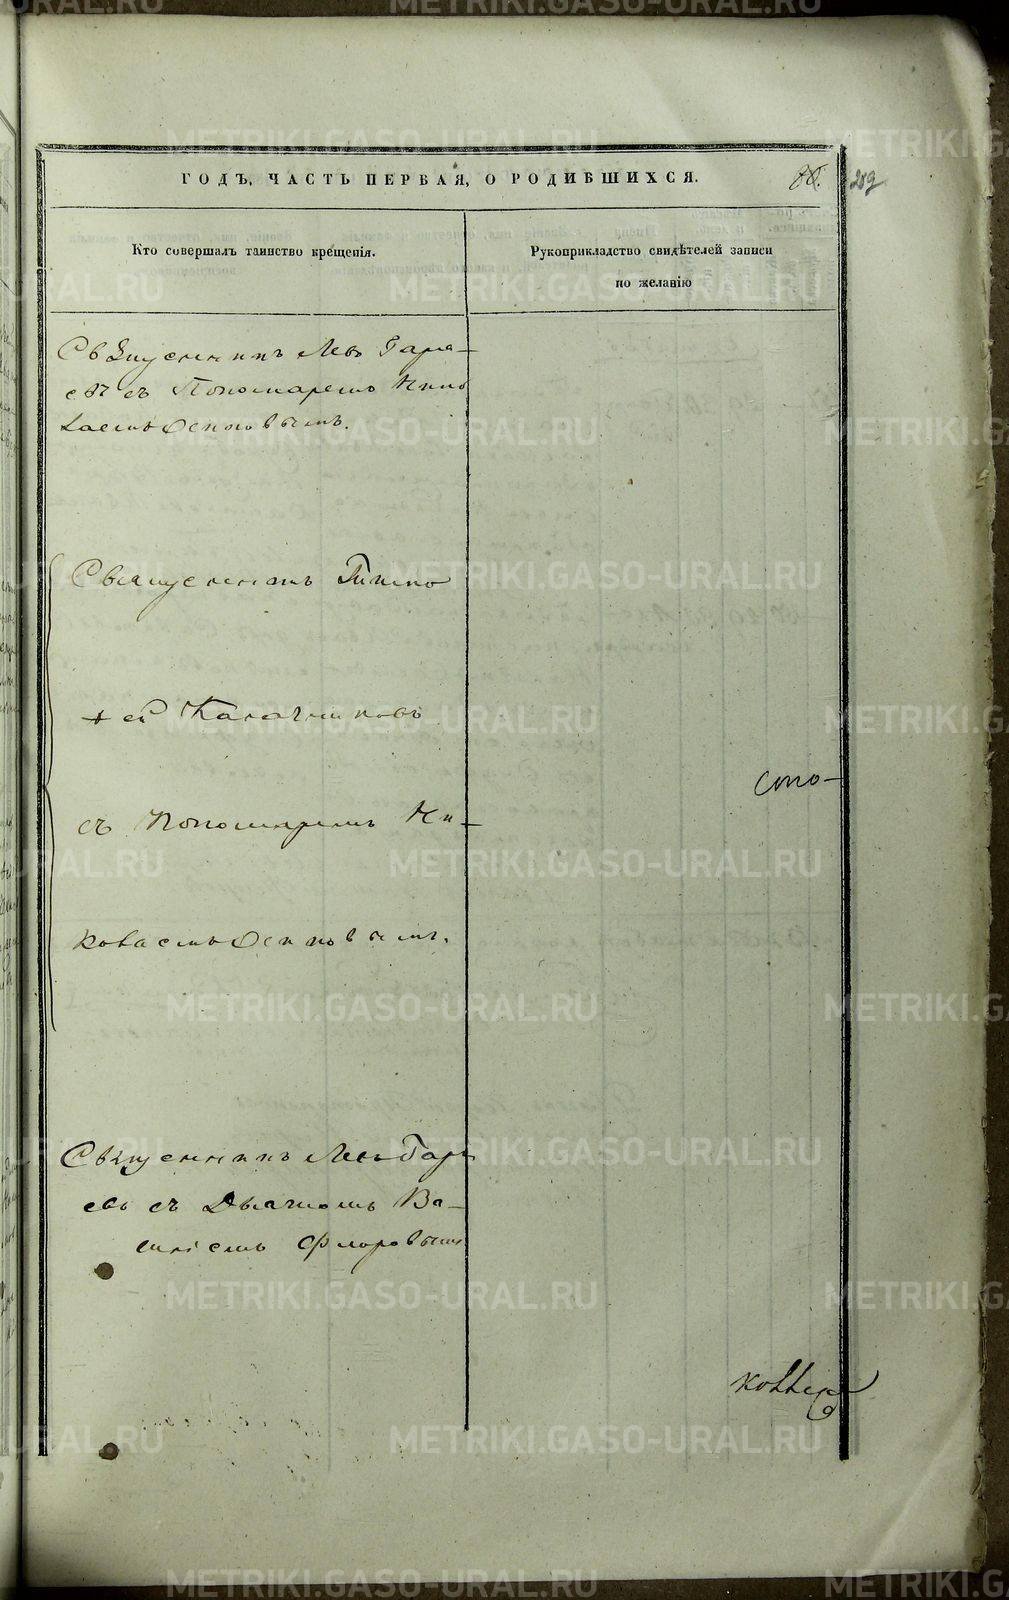 ГОДЪ, ЧАСТЬ ПЕРВАЯ, О РОДИВШИХСЯ.
Кто совершалъ таинство крещенія.
Рукоприкладство свидѣтелей записи
по желанію
Священникъ Левъ Гаря-
евъ съ Пономаремъ Нико
лаемъ Осиповымъ.
Священникъ Тимо
ѳей Калачниковъ
съ Пономаремъ Ни-
колаемъ Осиповымъ.
Священникъ Левъ Гаря
евъ съ Дьячкомъ Ва-
силіемъ Флоровымъ
METRIKI.GASO-URAL.RU